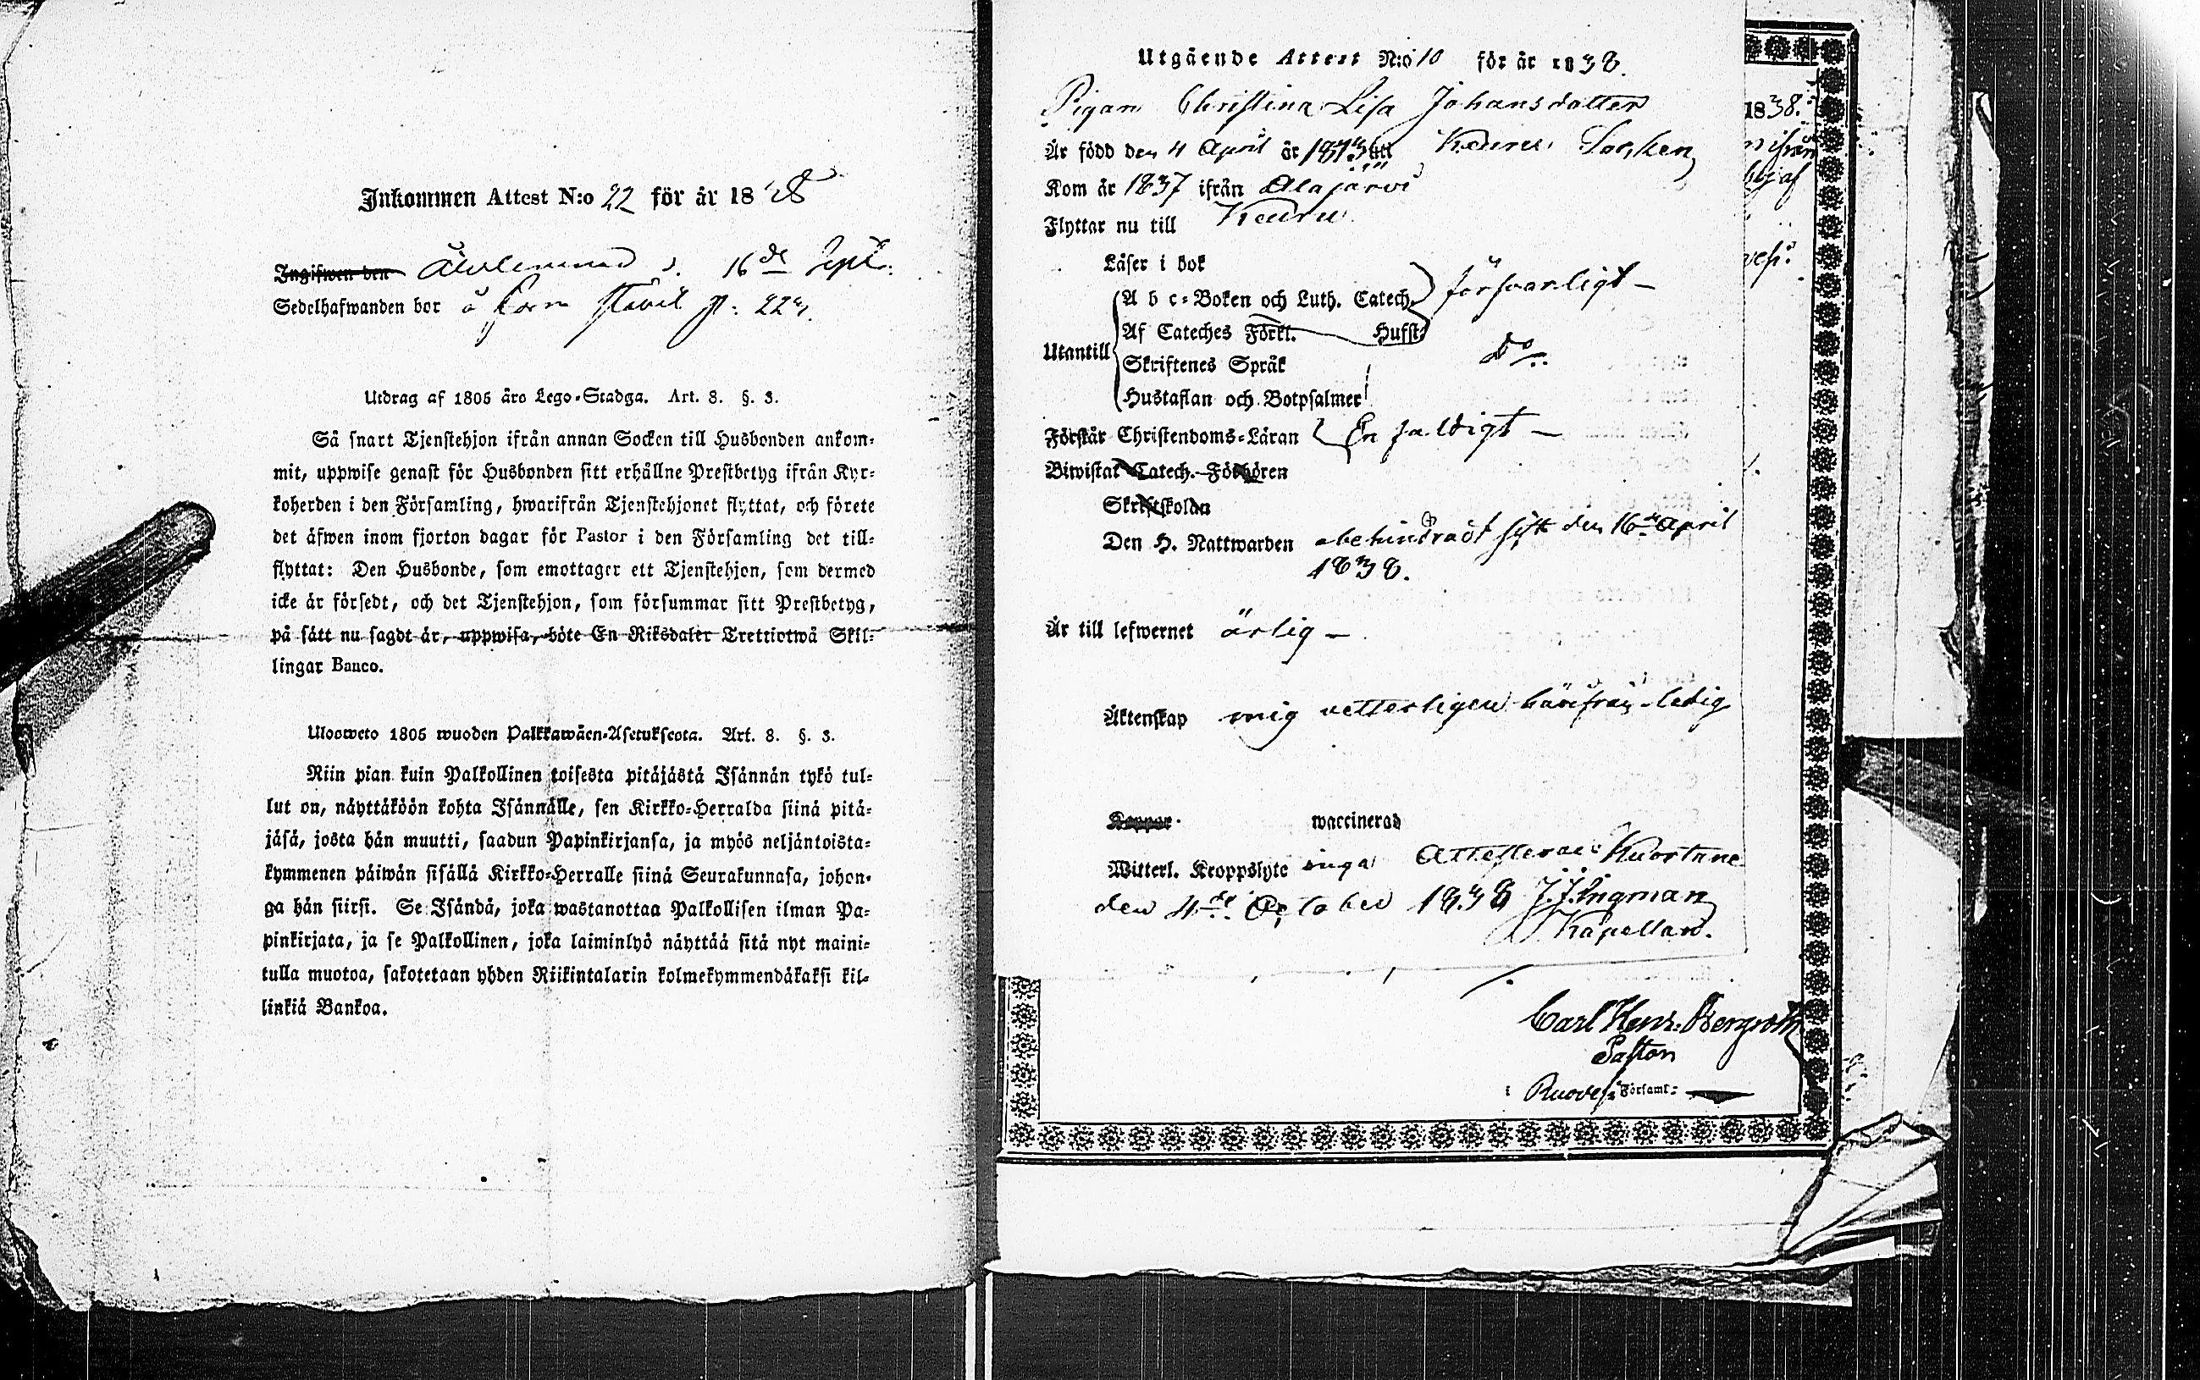 Inkommen Attest N:o 22 för år 18
Ingifwen den 16de Sept.
Sedelhafwanden bor å p. 22
Utdrag af 1805 års Lego-Stadga. Art. 8. §. 3.
Så snart Tjenstehjon ifrån annan Socken till Husbonden ankom-
mit, uppwise genast för Husbonden sitt erhållne Prestbetyg ifrån Kyr-
koherden i den Församling, hwarifrån Tjenstehjonet flyttat, och förete
det äfwen inom fjorton dagar för Pastor i den Församling det till-
flyttat: Den Husbonde, som emottager ett Tjenstehjon, som dermed
icke är försedt, och det Tjenstehjon, som försummar sitt Prestbetyg,
på sätt nu sagdt är, uppwisa, böte En Riksdaler Trettiotwå Skil-
lingar Banco.
Ulosweto 1805 wuoden Palkkawäen-Asetuksesta. Art. 8. §. 3.
Niin pian kuin Palkollinen toisesta pitäjästä Isännän tykö tul-
lut on, näyttäköön kohta Isännälle, sen Kirkko-Herralda siinä pitä-
jäsä, josta hän muutti, saadun Papinkirjansa, ja myös neljäntoista-
kymmenen päiwän sisällä Kirkko-Herralle siinä Seurakunnasa, johon-
ga hän siirsi. Se Isändä, joka wastanottaa Palkollisen ilman Pa-
pinkirjata, ja se Palkollinen, joka laiminlyö näyttää sitä nyt maini-
tulla muotoa, sakotetaan yhden Riikintalarin kolmekymmendäkaksi kil-
linkiä Bankoa.
Utgående Attest N:o 10 för år 1838.
Pigan Christina Lisa Johansdotter
Är född den 4 April år 1813 uti Keuru Socken
Kom år 1837 ifrån Alajärvi
Flyttar nu till Keuru
Läser i bok
A b c-Boken och Luth. Catech. försvarligt
Af Cateches Förkl. Hufst.
Utantill
Skriftenes Språk Do
Hustaflan och Botpsalmer
Förstår Christendoms-Läran Enfaldigt
Biwistat Catech. Förhören
Skriftskolan
Den H. Nattwarden obehindradt sist den 16de April
1838.
Är till lefwernet ärlig
Äktenskap mig vetterligen härifrån ledig
Koppor waccinerad
Witterl. Kroppslyte inga Attesterar Kuortane
den 4de October 1838 J.J. Ingman
Kapellan.
1838.
Carl Henr. Bergroth
Pastor
i Ruovesi Församl: